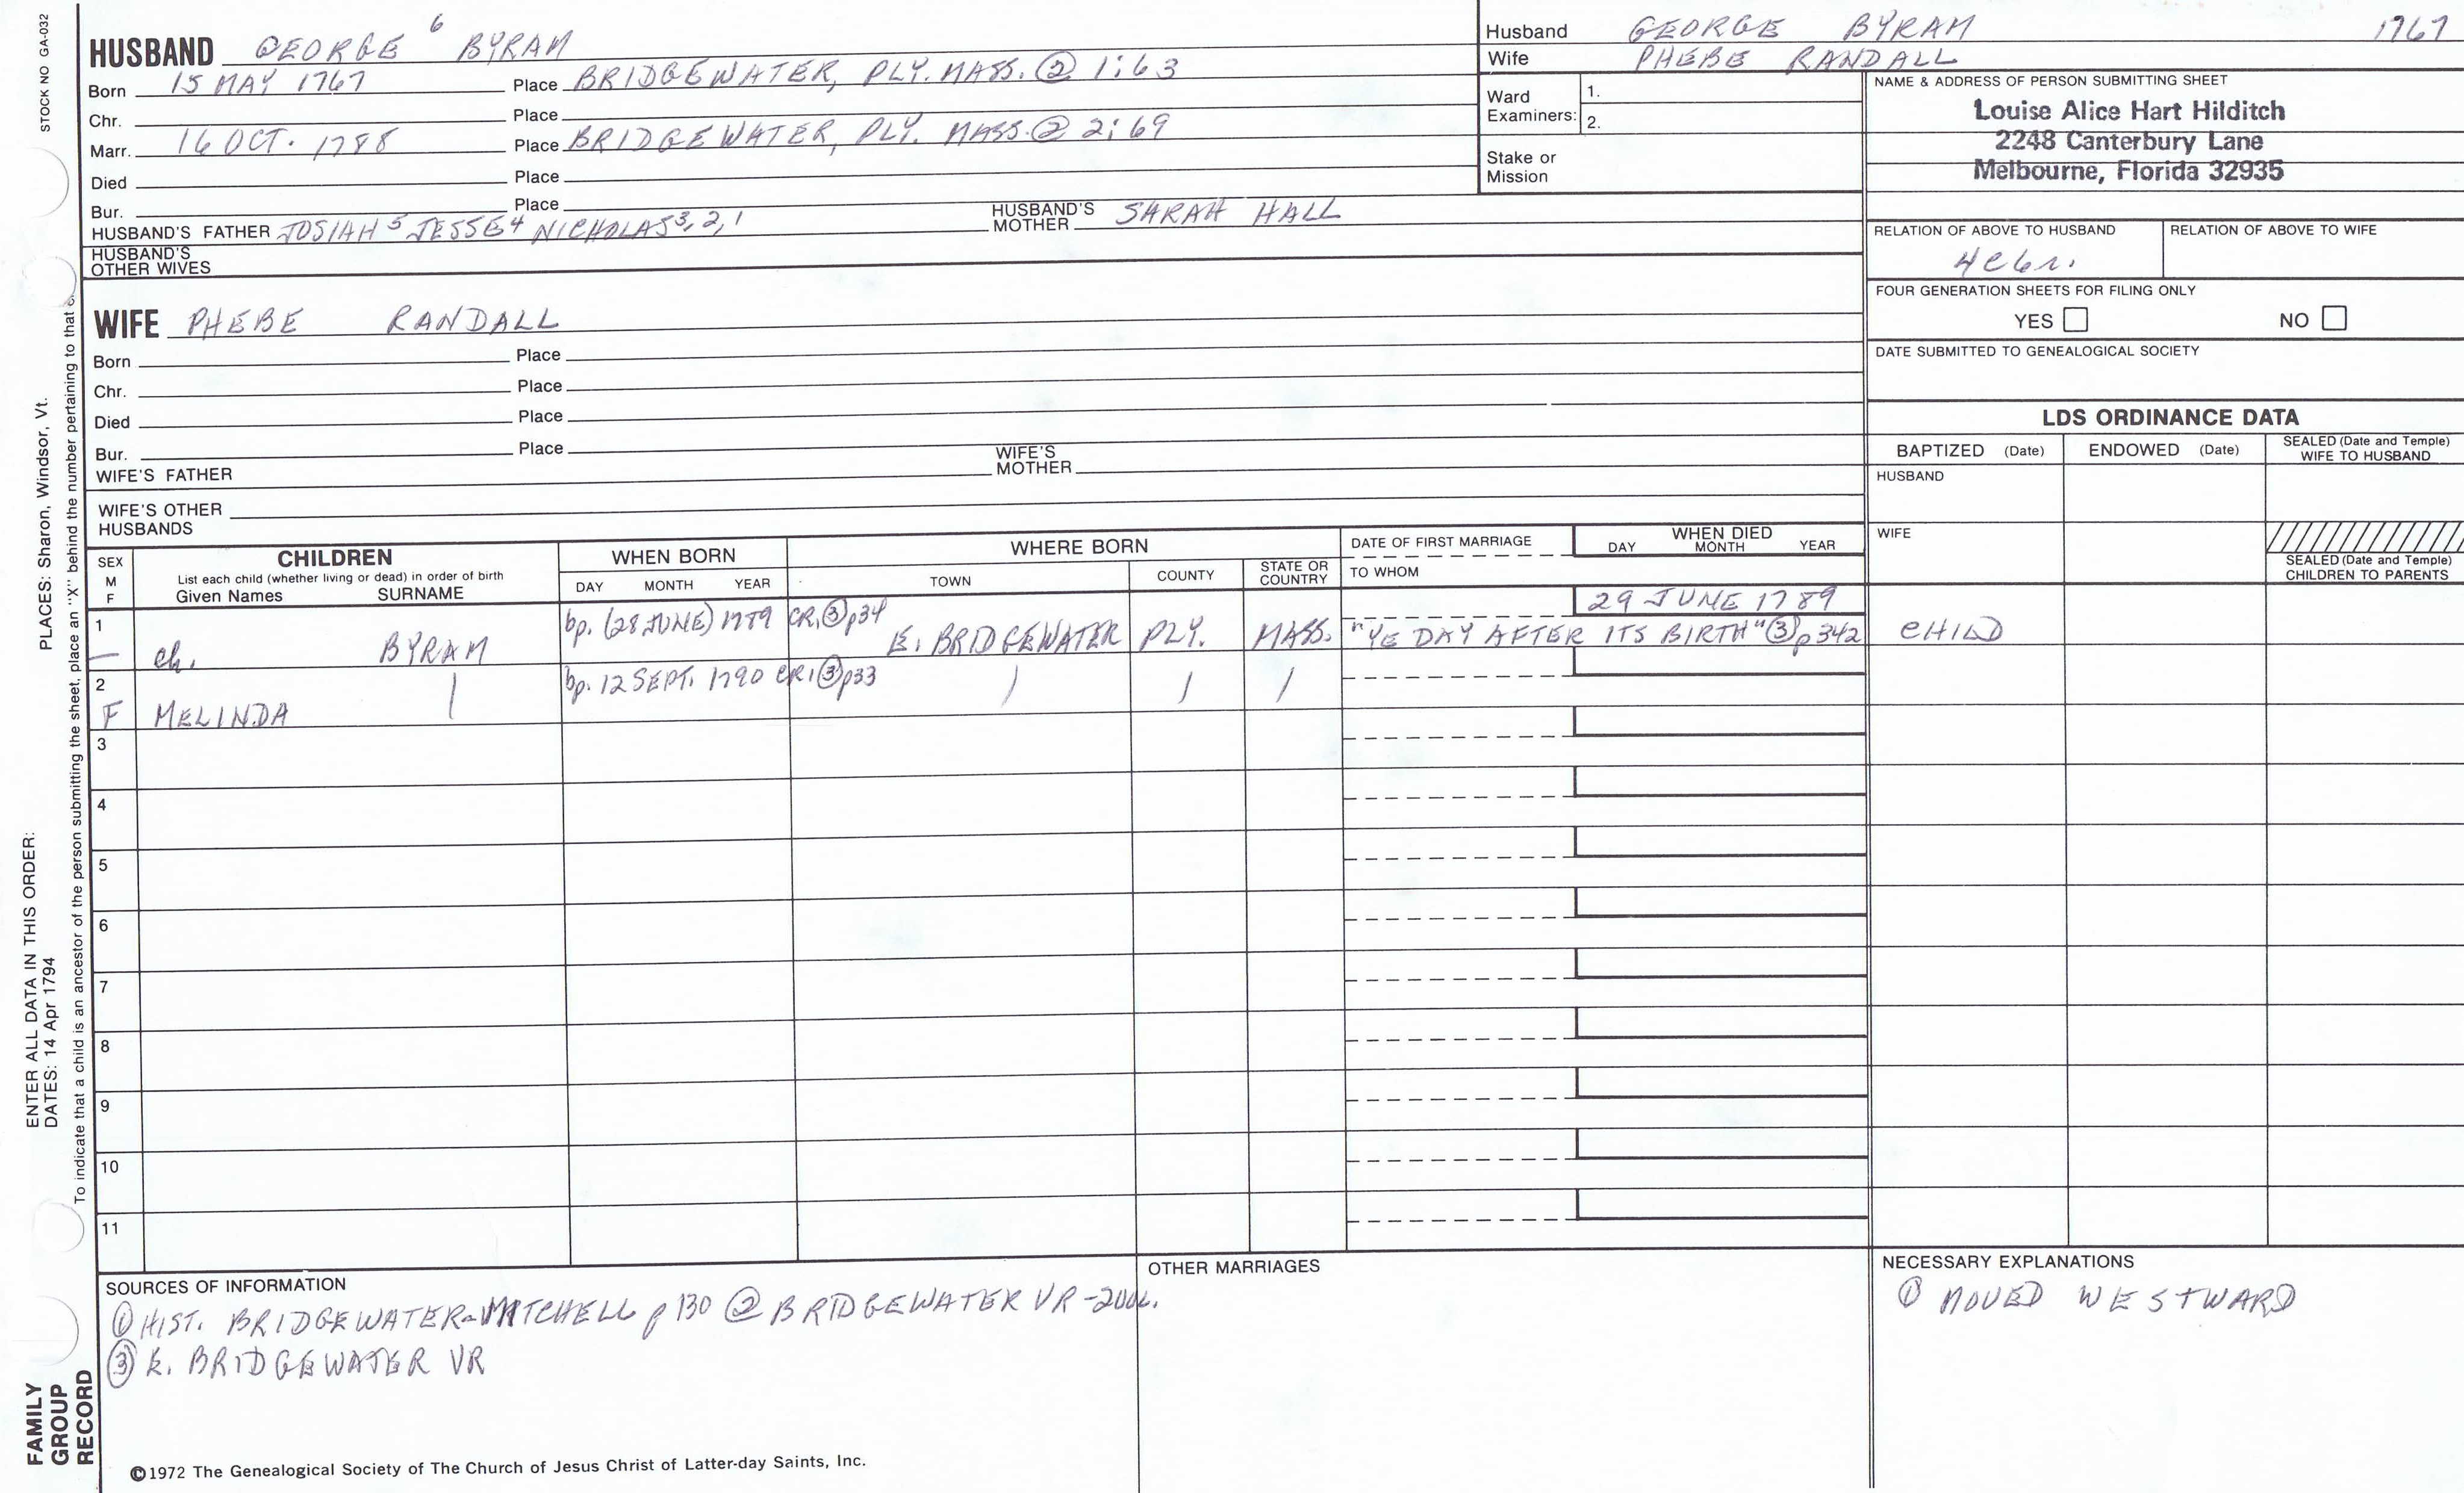 STOCK NO GA-032
HUSBAND GEORGE 6 BYRAM
Born 15 MAY 1767 Place BRIDGEWATER, PLY. MASS. ② 1:63
Chr. Place
Marr. 16 OCT. 1788 Place BRIDGEWATER, PLY. MASS. ② 2:69
Died Place
Bur. Place
HUSBAND'S FATHER JOSIAH 5 JESSE 4 NICHOLAS 3, 2, 1 HUSBAND'S MOTHER SARAH HALL
HUSBAND'S OTHER WIVES
Husband GEORGE BYRAM 1767
Wife PHEBE RANDALL
Ward Examiners: 1.
2.
Stake or Mission
NAME & ADDRESS OF PERSON SUBMITTING SHEET
Louise Alice Hart Hilditch
2248 Canterbury Lane
Melbourne, Florida 32935
RELATION OF ABOVE TO HUSBAND RELATION OF ABOVE TO WIFE
FOUR GENERATION SHEETS FOR FILING ONLY
YES NO
DATE SUBMITTED TO GENEALOGICAL SOCIETY
WIFE PHEBE RANDALL
Born Place
Chr. Place
Died Place
Bur. Place
WIFE'S FATHER WIFE'S MOTHER
WIFE'S OTHER HUSBANDS
LDS ORDINANCE DATA
BAPTIZED (Date) ENDOWED (Date) SEALED (Date and Temple) WIFE TO HUSBAND
HUSBAND
WIFE
SEALED (Date and Temple) CHILDREN TO PARENTS
SEX M F
CHILDREN
List each child (whether living or dead) in order of birth
Given Names SURNAME
WHEN BORN
DAY MONTH YEAR
WHERE BORN
TOWN COUNTY STATE OR COUNTRY
DATE OF FIRST MARRIAGE
TO WHOM
WHEN DIED
DAY MONTH YEAR
1 ch. BYRAM bp. (28 JUNE) 1789 CR1 ③ p34 E. BRIDGEWATER PLY. MASS. 29 JUNE 1789
"YE DAY AFTER ITS BIRTH" ③ p342 CHILD
2 F MELINDA bp. 12 SEPT. 1790 CR1 ③ p33
3
4
5
6
7
8
9
10
11
SOURCES OF INFORMATION
① HIST. BRIDGEWATER-MITCHELL p 130 ② BRIDGEWATER VR
③ E. BRIDGEWATER VR
OTHER MARRIAGES
NECESSARY EXPLANATIONS
① MOVED WESTWARD
©1972 The Genealogical Society of The Church of Jesus Christ of Latter-day Saints, Inc.
PLACES: Sharon, Windsor, Vt.
ENTER ALL DATA IN THIS ORDER:
DATES: 14 Apr 1794
To indicate that a child is an ancestor of the person submitting the sheet, place an "X" behind the number pertaining to that
FAMILY
GROUP
RECORD